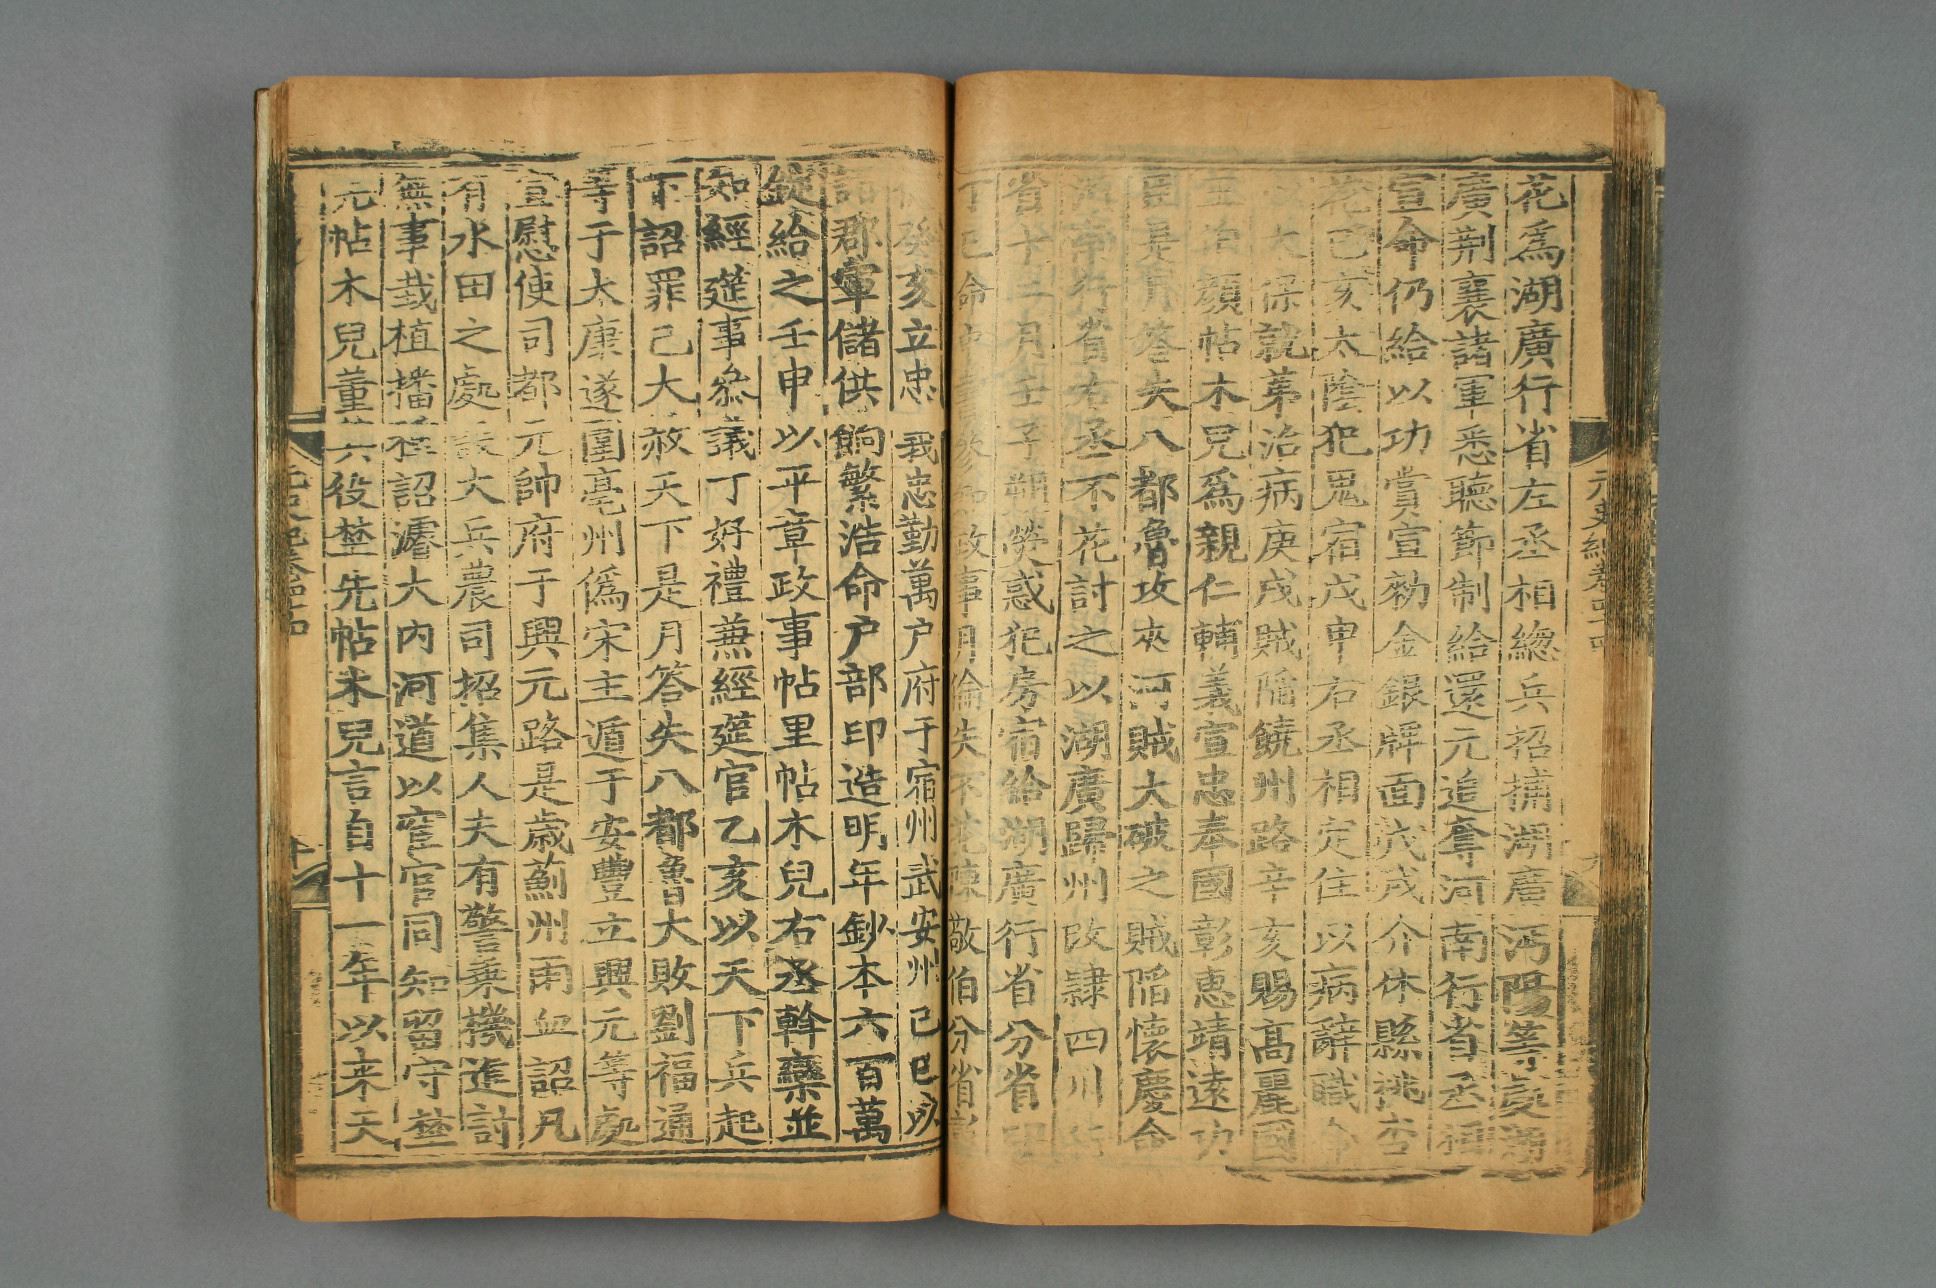 元史紀卷四十四
花為湖廣行省左丞相總兵招捕湖廣沔陽等處湖
廣荆襄諸軍悉聽節制給還元追奪河南行省丞相
宣命仍給以功賞宣勑金銀牌面戊戌介休縣桃杏
花己亥太陰犯鬼宿戊申右丞相定住以病辭職命
太保就第治病庚戌賊陷饒州路辛亥賜高麗國
王伯顏帖木兒為親仁輔義宣忠奉國彰惠靖遠功
臣是月答失八都魯攻夾河賊大破之賊陷懷慶命
河南行省右丞不花討之以湖廣歸州改隸四川行
省十二月壬子朔熒惑犯房宿給湖廣行省分省
丁巳命中書參知政事月倫失不花陳敬伯分省
癸亥立忠義忠勤萬户府于宿州武安州己巳以
諸郡軍儲供餉繁浩命户部印造明年鈔本六百萬
錠給之壬申以平章政事帖里帖木兒右丞斡欒並
知經筵事參議丁好禮兼經筵官乙亥以天下兵起
下詔罪己大赦天下是月答失八都魯大敗劉福通
等于太康遂圍亳州偽宋主遁于安豐立興元等處
宣慰使司都元帥府于興元路是歲薊州雨血詔凡
有水田之處設大兵農司招集人夫有警乘機進討
無事栽植播種詔濬大内河道以宦官同知留守埜
先帖木兒董其役埜先帖木兒言自十一年以来天